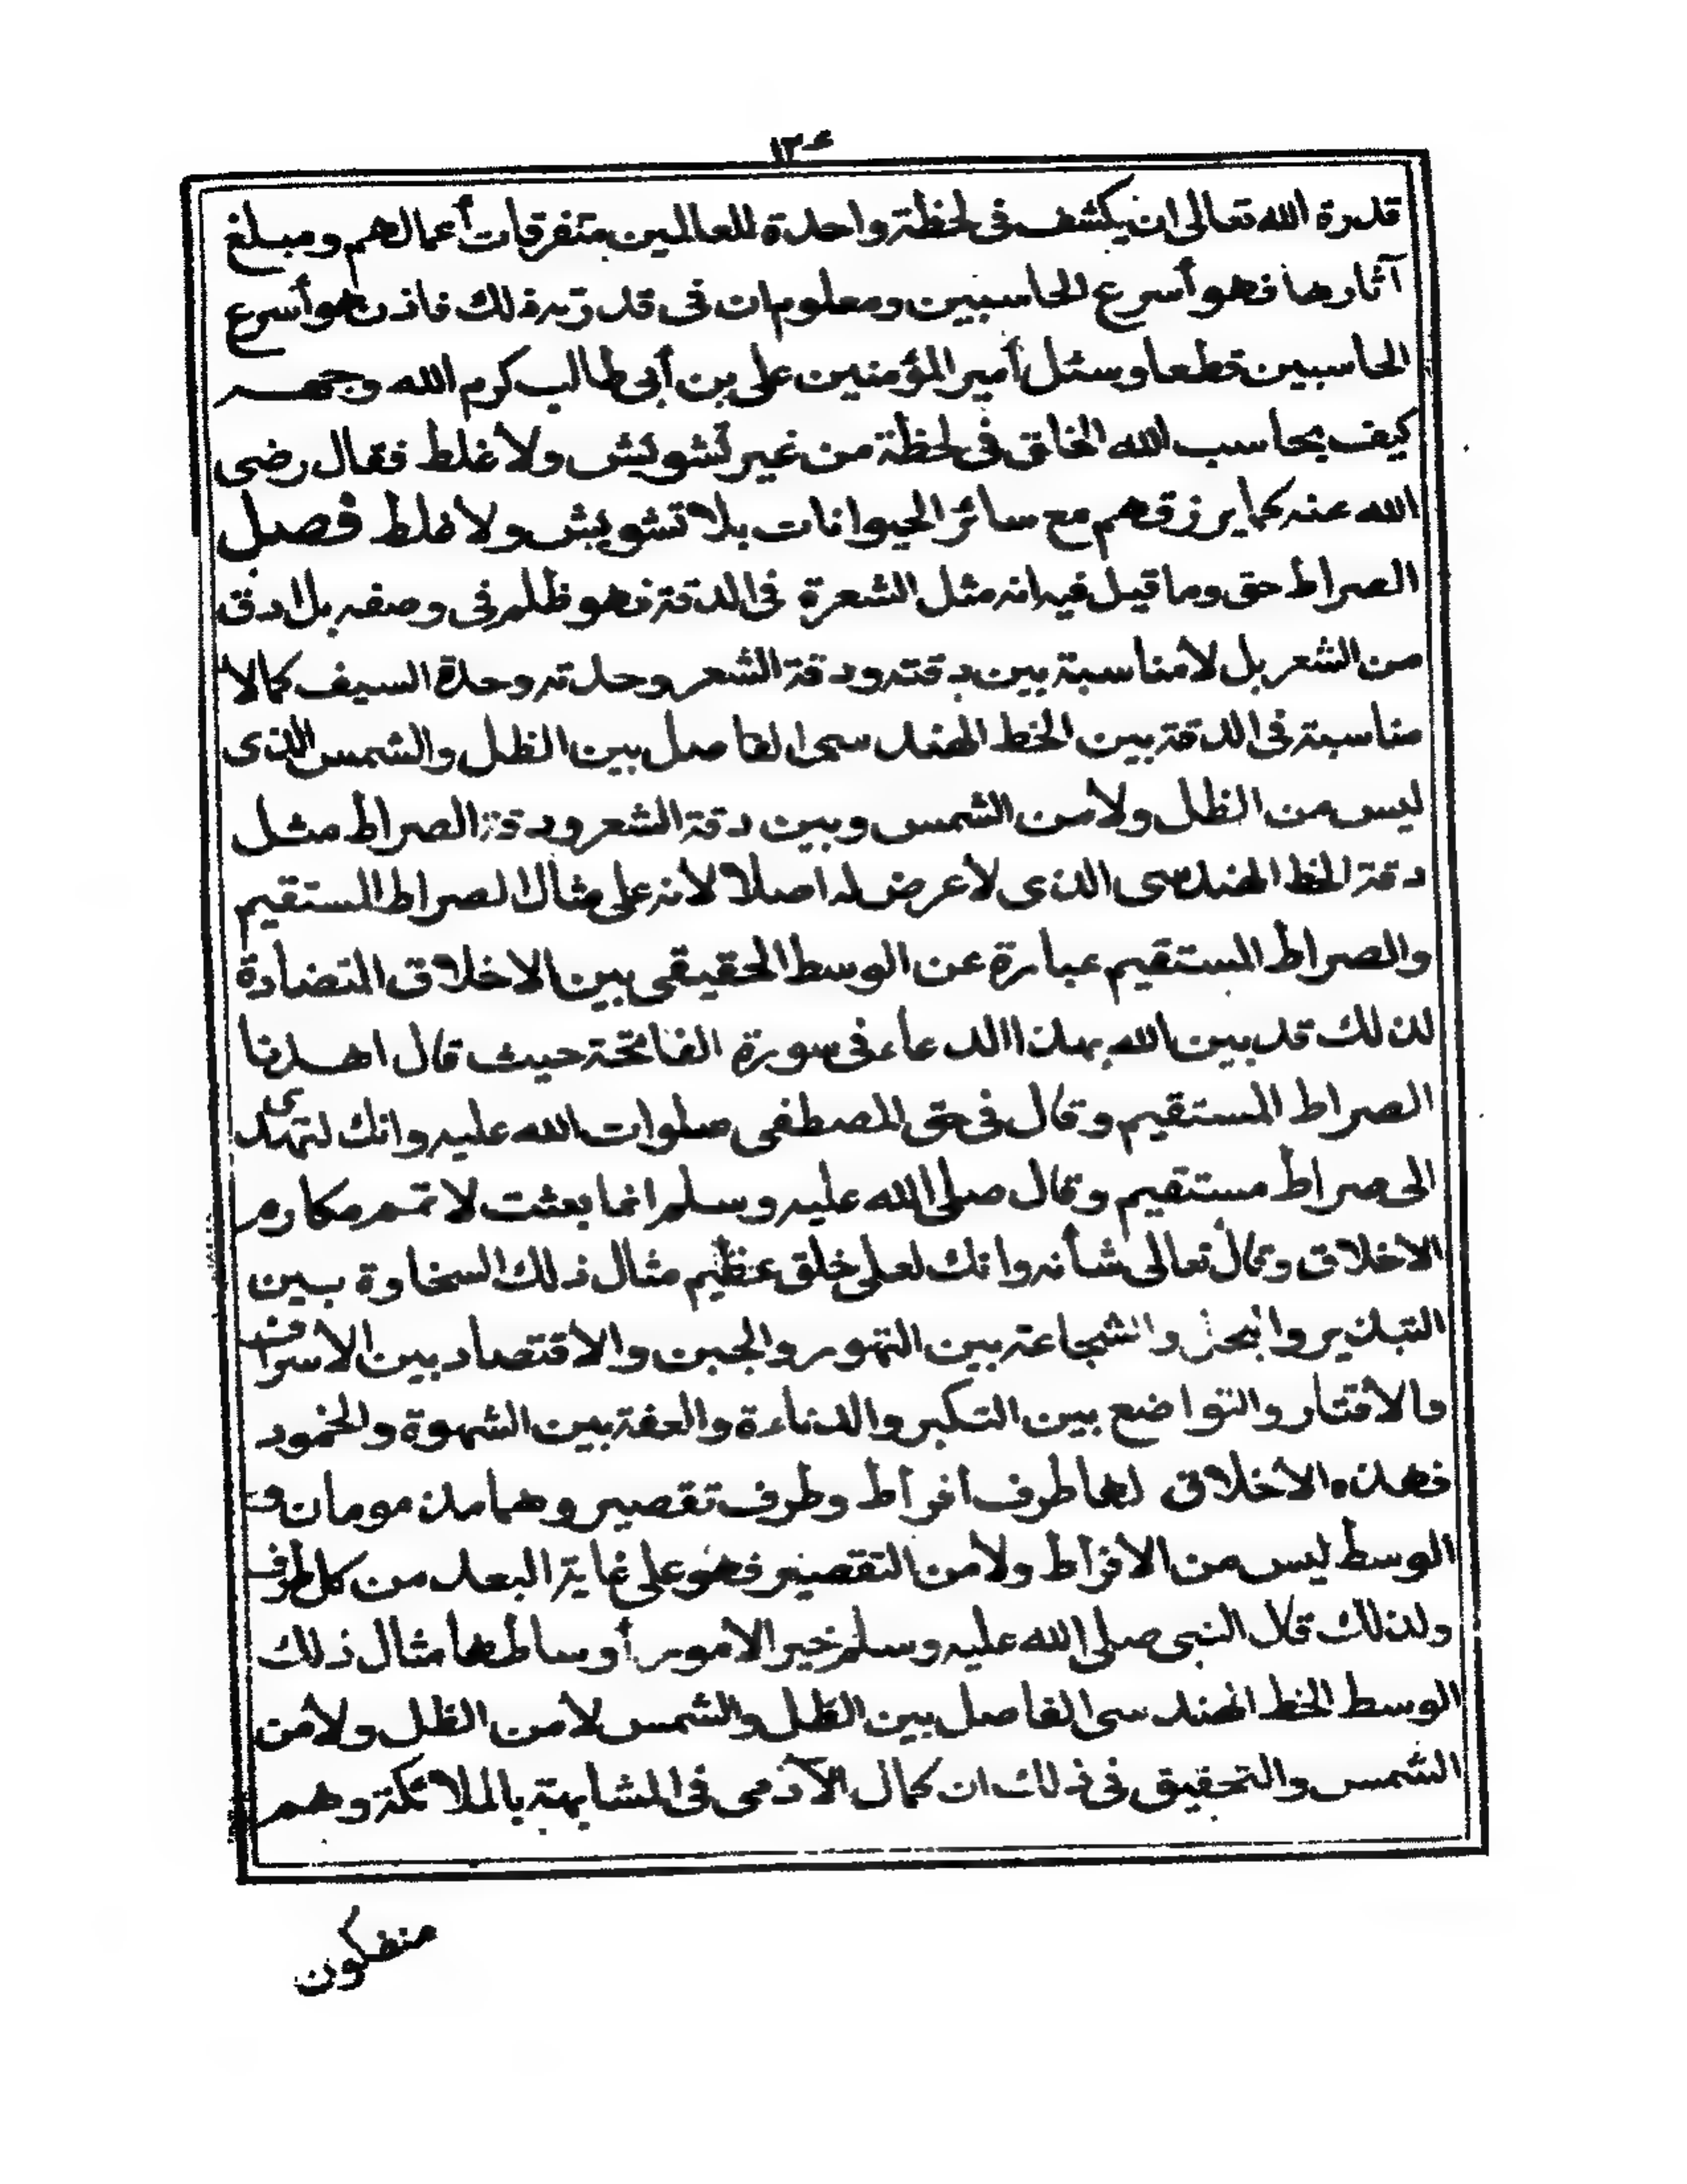 ١٣٤
قدرة الله تعالى ان يكشف فى لحظة واحدة للعالمين متفرقات أعمالهم ومبلغ
آثارها فهو أسرع الحاسبين ومعلوم ان فى قدرته ذلك فاذن هو أسرع
الحاسبين قطعا وسئل أمير المؤمنين على بن أبى طالب كرم الله وجهه
كيف يحاسب الله الخلق فى لحظة من غير تشويش ولا غلط فقال رضى
الله عنه كما يرزقهم مع سائر الحيوانات بلا تشويش ولا غلط فصل
الصراط حق وما قيل فيه انه مثل الشعرة فى الدقة فهو ظلم فى وصفه بل ادق
من الشعر بل لا مناسبة بين دقته ودقة الشعر وحدته وحدة السيف كما لا
مناسبة فى الدقة بين الخط الهندسى الفاصل بين الظل والشمس الذى
ليس من الظل ولا من الشمس وبين دقة الشعر ودقة الصراط مثل
دقة الخط الهندسى الذى لا عرض له اصلا لأنه على مثال الصراط المستقيم
والصراط المستقيم عبارة عن الوسط الحقيقى بين الاخلاق المتضادة
لذلك قد بين الله بهذا الدعاء فى سورة الفاتحة حيث قال اهدنا
الصراط المستقيم وقال فى حق المصطفى صلوات الله عليه وانك لتهدى
الى صراط مستقيم وقال صلى الله عليه وسلم انما بعثت لاتمم مكارم
الاخلاق وقال تعالى شأنه وانك لعلى خلق عظيم مثال ذلك السخاوة بين
التبذير والبخل والشجاعة بين التهور والجبن والاقتصاد بين الاسراف
والاقتار والتواضع بين التكبر والدناءة والعفة بين الشهوة والخمود
فهذه الاخلاق لها طرف افراط وطرف تقصير وهما مذمومان و
الوسط ليس من الافراط ولا من التقصير فهو على غاية البعد من كل طرف
ولذلك قال النبى صلى الله عليه وسلم خير الامور أوساطها مثال ذلك
الوسط الخط الهندسى الفاصل بين الظل والشمس لا من الظل ولا من
الشمس والتحقيق فى ذلك ان كمال الآدمى فى المشابهة بالملائكة وهم
منفكون